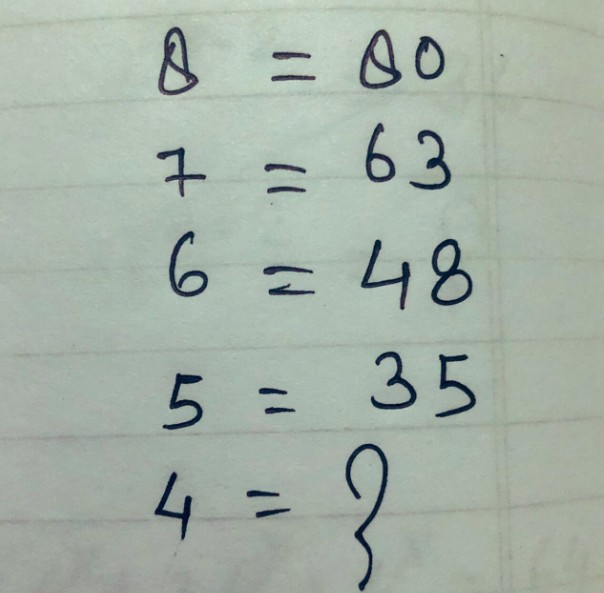 8 = 80
7 = 63
6 = 48
5 = 35
4 = ?